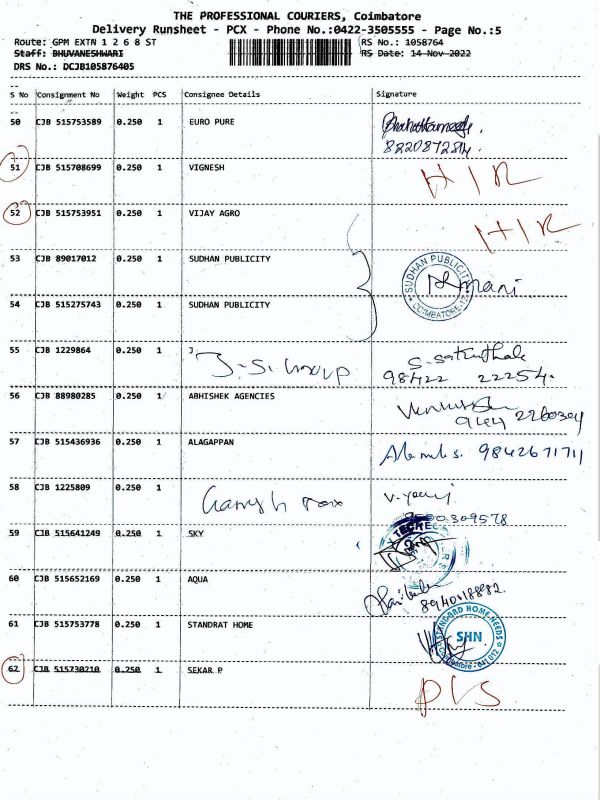 THE PROFESSIONAL COURIERS, Coimbatore
Delivery Runsheet - PCX - Phone No.:0422-3505555 - Page No.:5
Route: GPM EXTN 1 2 6 8 ST RS No.: 1058764
Staff: BHUVANESHWARI RS Date: 14 Nov 2022
DRS No.: DCJB105876405
S No Consignment No Weight PCS Consignee Details Signature
50 CJB 515753589 0.250 1 EURO PURE
51 CJB 515708699 0.250 1 VIGNESH H/R
52 CJB 515753951 0.250 1 VIJAY AGRO H/R
53 CJB 89017012 0.250 1 SUDHAN PUBLICITY SUDHAN PUBLICITY
54 CJB 515275743 0.250 1 SUDHAN PUBLICITY
55 CJB 1229864 0.250 1 J
98422 22254.
56 CJB 88980285 0.250 1 ABHISHEK AGENCIES
57 CJB 515436936 0.250 1 ALAGAPPAN 9842671711
58 CJB 1225809 0.250 1
59 CJB 515641249 0.250 1 SKY
60 CJB 515652169 0.250 1 AQUA
61 CJB 515753778 0.250 1 STANDRAT HOME STANDARD HOME NEEDS SHN
62 CJB 515730210 0.250 1 SEKAR P